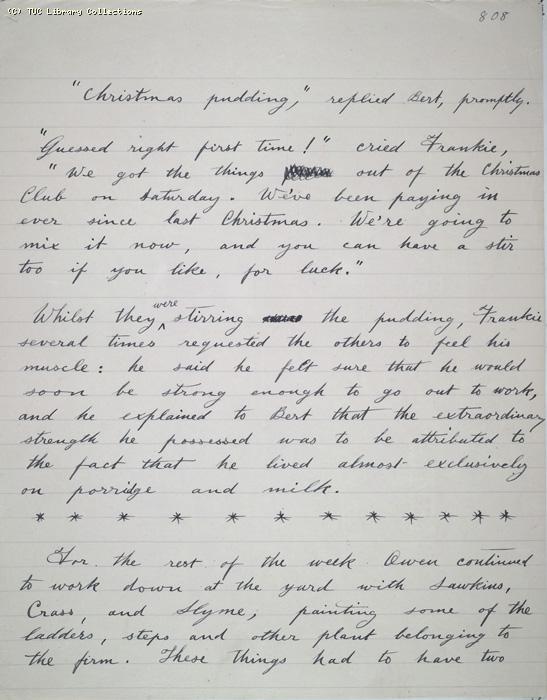 (C) TUC Library Collections
808
"Christmas pudding," replied Bert, promptly.
"Guessed right first time!" cried Frankie,
"We got the things out of the Christmas
Club on Saturday. We've been paying in
ever since last Christmas. We're going to
mix it now, and you can have a stir
too if you like, for luck."
Whilst they were stirring the pudding, Frankie
several times requested the others to feel his
muscle: he said he felt sure that he would
soon be strong enough to go out to work,
and he explained to Bert that the extraordinary
strength he possessed was to be attributed to
the fact that he lived almost exclusively
on porridge and milk.
* * * * * * * * * * * *
For the rest of the week Owen continued
to work down at the yard with Sawkins,
Crass, and Slyme, painting some of the
ladders, steps and other plant belonging to
the firm. These things had to have two